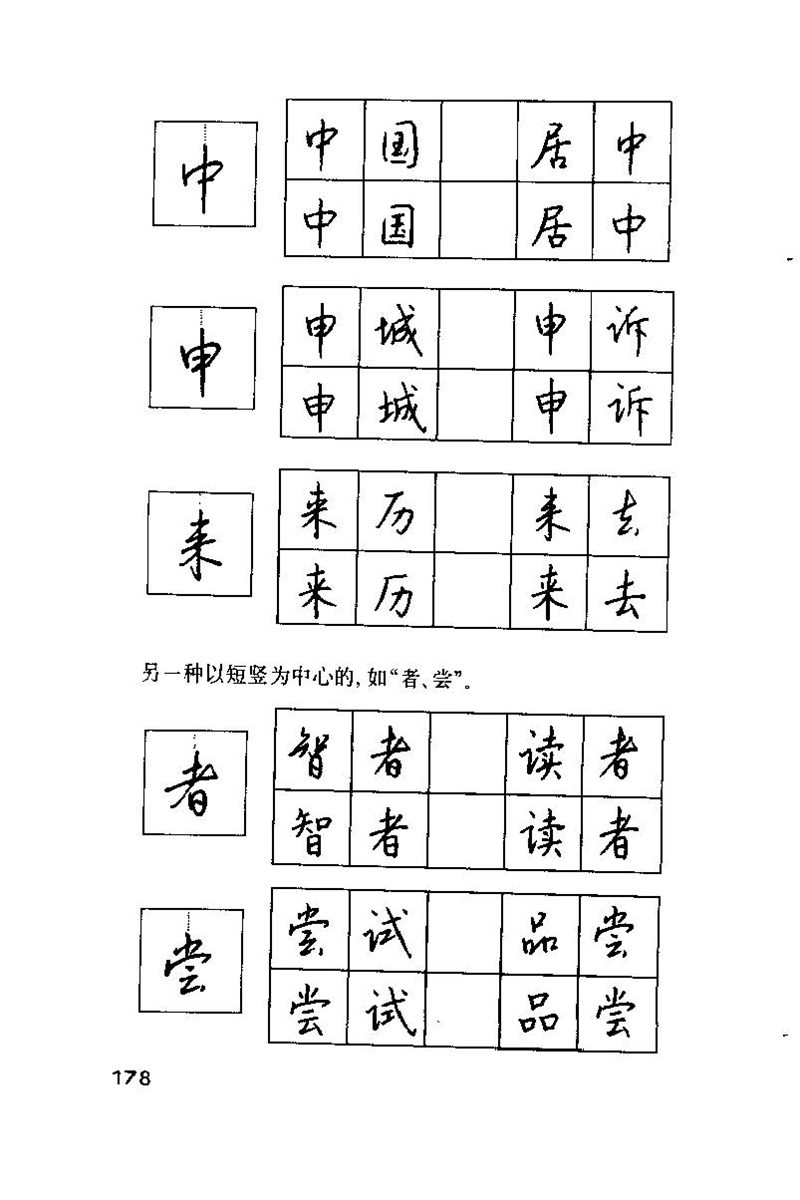 中
中国 居中
中国 居中
申
申城 申诉
申城 申诉
来
来历 来去
来历 来去
另一种以短竖为中心的,如“者、尝”。
者
智者 读者
智者 读者
尝
尝试 品尝
尝试 品尝
178